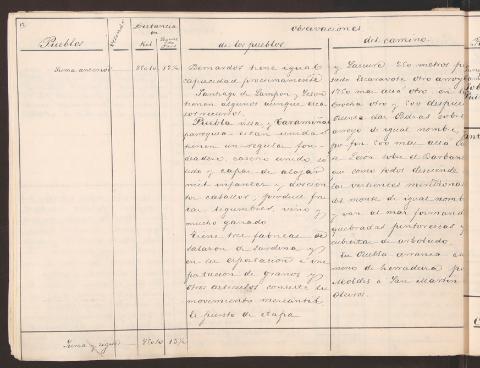 12
Pueblos
Vecinos
Distancia
en
Kil
observaciones
de los pueblos
del camino
Suma anterior
15½
Bernardos tiene igual
capacidad proximamente
Santiago de Lampon y Leson
tienen algunos aunque esca-
sos recursos.
Puebla villa y Caramiñal
parroquia estan unidas
tienen un regular fon-
deadero, caserio unido
y capaz de alojar
mil infantes y doscien
tos caballos, produce fru
tas legumbres, vino y
mucho ganado.
Tiene tres fabricas de
salazon de sardina y
en la exportacion é im-
portacion de granos y
otros articulos consiste su
movimiento mercantil
Es puesto de etapa
y Lacurre 250 metros
otro arroyo
1750 mas allá otro, en la
brocha otro y 600 despues
Puente das Pedras sobre
arroyo de igual nombre,
por fin 600 mas allá
á Leson sobre el Barbanza
como todos desciende
las vertientes meridional
del monte de igual nombre
y van al mar formando
quebradas pintorescas y
cubierta de arbolado.
En Puebla arranca un
camino de herradura por
Moldes á San Martin
Oleiros.
Suma y sigue
15½